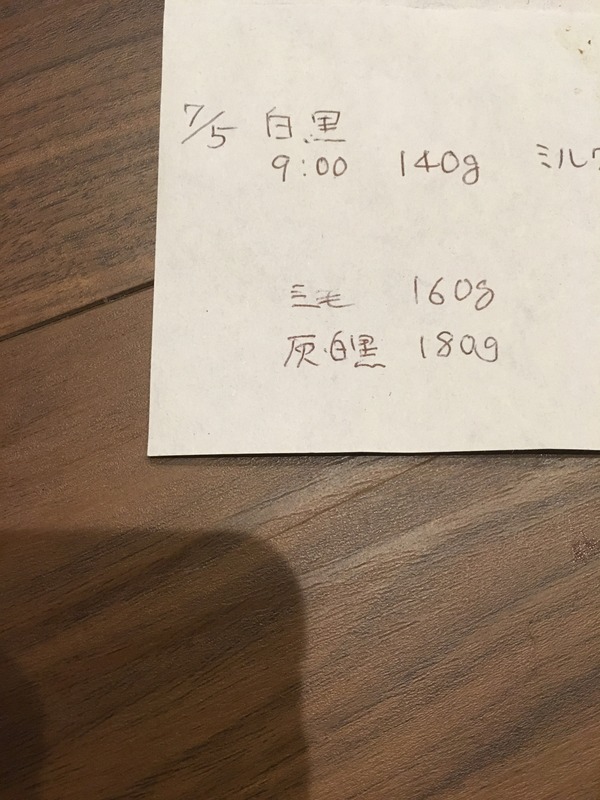 7/5 白黒
9:00 140g ミルク
三毛 160g
灰・白黒 180g